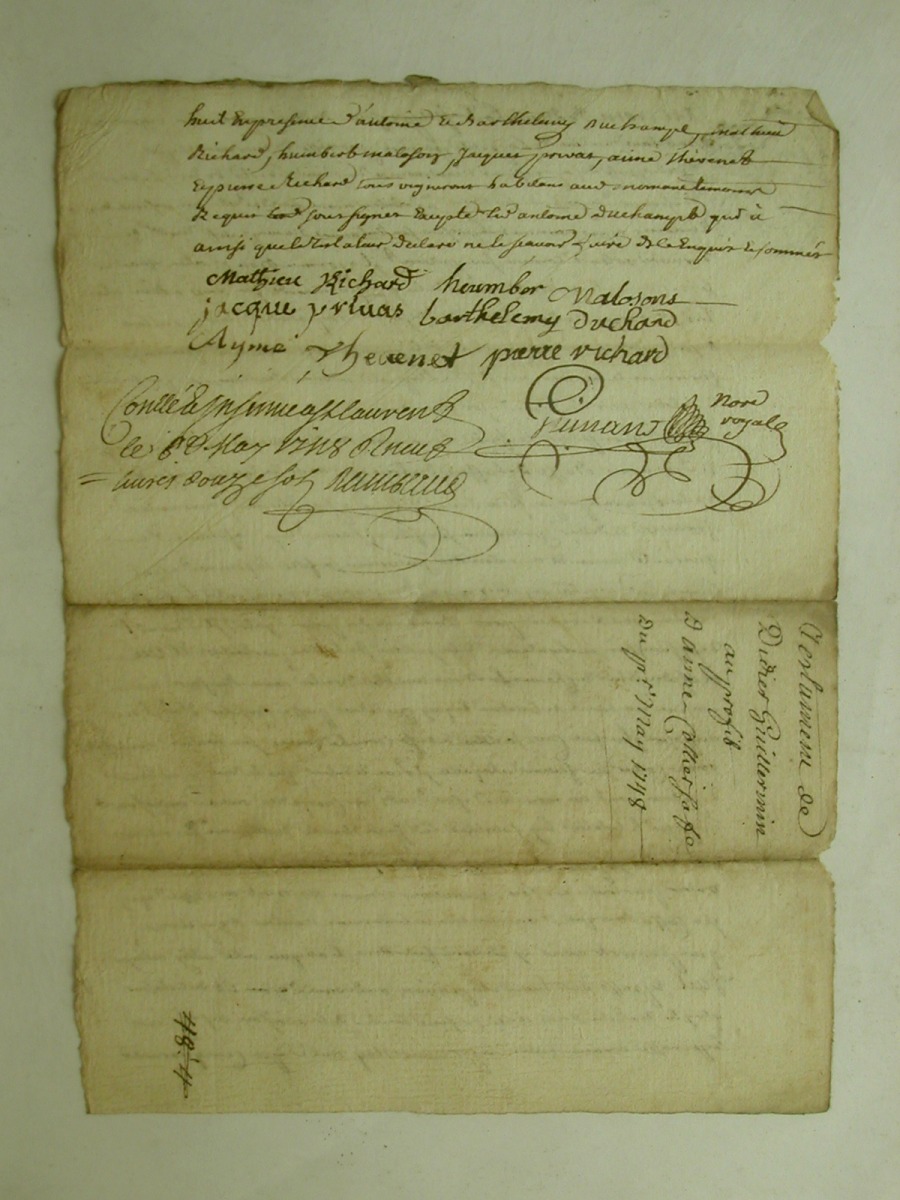 huit En presence d'antoine et Barthelemy duchampt, mathieu
Richard, humbert malosson, Jacques privas, aimé thevenet
et pierre Richard tous vignerons habitans aud. temoins
Requis soussignés Excepté led. antoine duchampt qui a
ainsi que le testateur declaré ne le scavoir faire de ce Enquis et sommés
Mathieu Richard heumber Malosons
jacque privas barthelemy duchand
Aymé Thevenet pierre richard
Conllé & Insinué a St laurent
le 8e May 1748 Receu
livres douze sols
Nore
royal
Testament de
Didier Guillermin
au profit
D'anne Collier sa fe
Du pr. May 1748
48.4